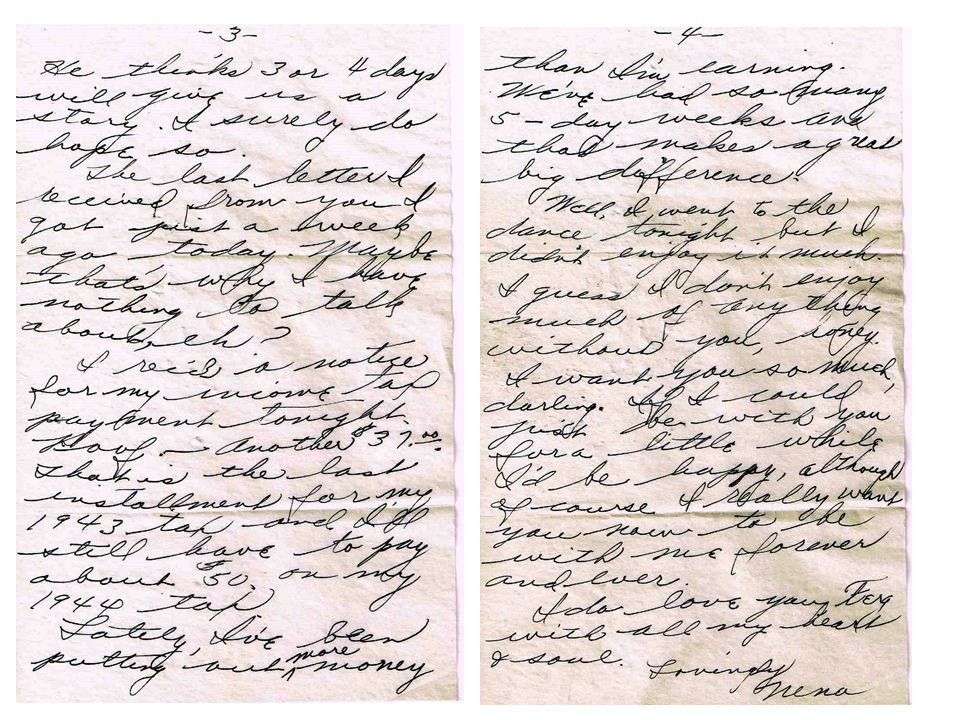 -3-
He thinks 3 or 4 days
will give us a
story. I surely do
hope so.
The last letter I
received from you I
got just a week
ago today. Maybe
that's why I have
nothing to talk
about, eh?
I rec'd a notice
for my income tax
payment tonight.
- Another $37.00.
That is the last
installment for my
1943 tax and I'll
still have to pay
about $50. on my
1944 tax
Lately, I've been
putting out more money
-4-
than I'm earning.
We've had so many
5-day weeks and
that makes a great
big difference.
Well, I went to the
dance tonight but I
didn't enjoy it much.
I guess I don't enjoy
much of anything
without you, honey.
I want you so much,
darling. If I could
just be with you
for a little while
I'd be happy, although
of course I really want
you now to be
with me forever
and ever.
I do love you, Ferg
with all my heart
& soul.
Lovingly
Nena